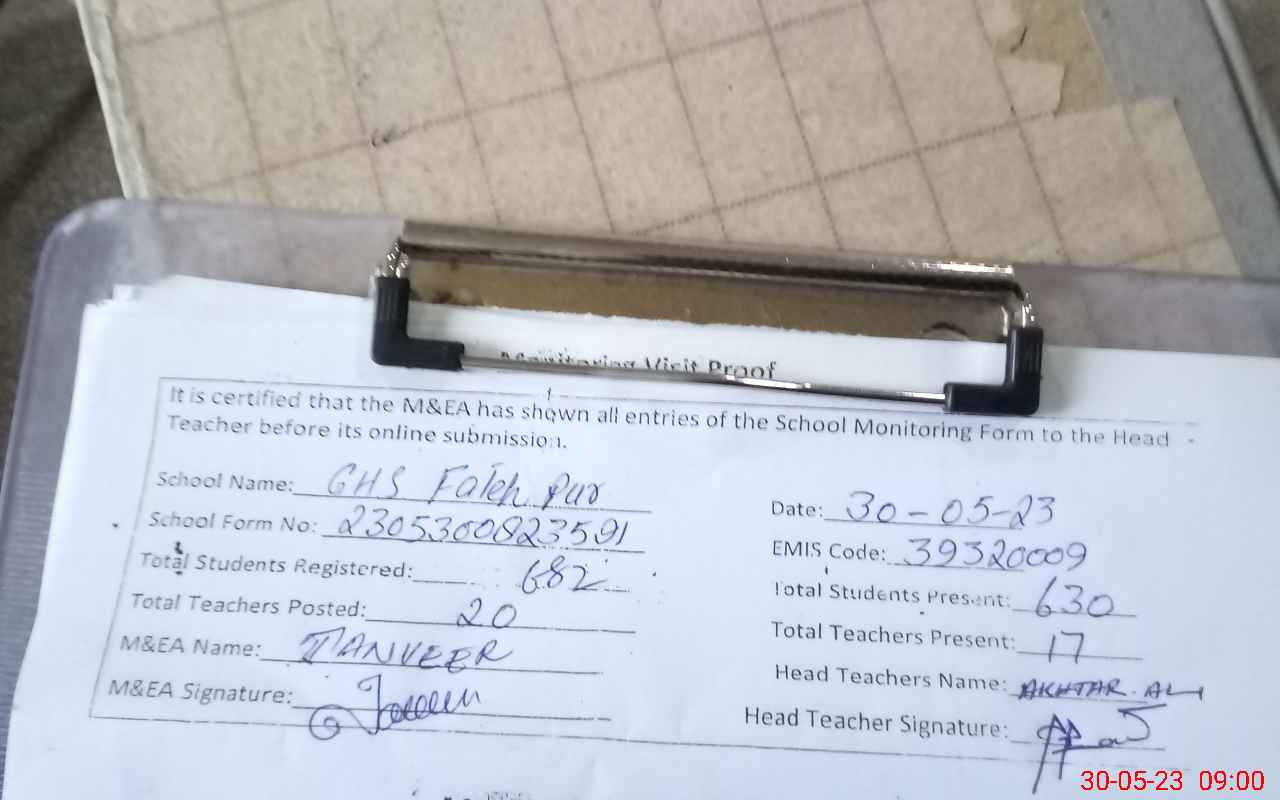 Monitoring Visit Proof
It is certified that the M&EA has shown all entries of the School Monitoring Form to the Head
Teacher before its online submission.
School Name: GHS Fateh Pur
Date: 30-05-23
School Form No: 2305300823591
EMIS Code: 39320009
Total Students Registered: 682
Total Students Present: 630
Total Teachers Posted: 20
Total Teachers Present: 17
M&EA Name: TANVEER
Head Teachers Name: AKHTAR ALI
M&EA Signature:
Head Teacher Signature:
30-05-23 09:00